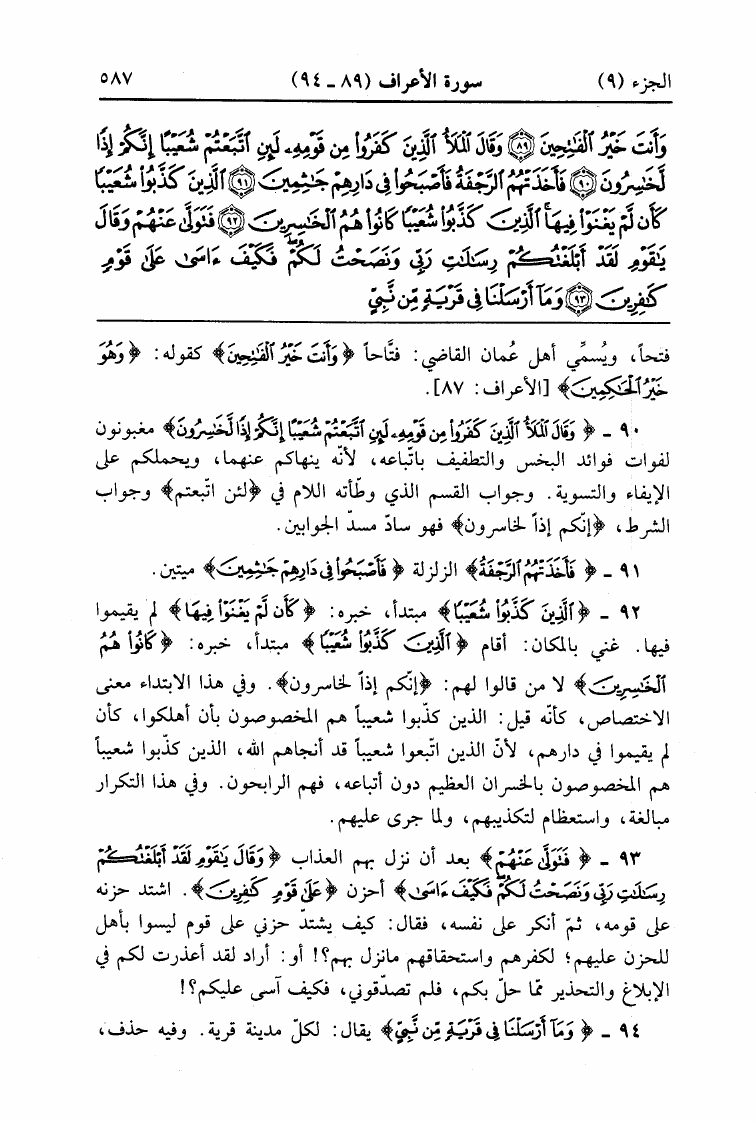 الجزء (٩) سورة الأعراف (٨٩ ـ ٩٤) ٥٨٧
وَأَنتَ خَيْرُ ٱلْفَٰتِحِينَ ٨٩ وَقَالَ ٱلْمَلَأُ ٱلَّذِينَ كَفَرُوا۟ مِن قَوْمِهِۦ لَئِنِ ٱتَّبَعْتُمْ شُعَيْبًا إِنَّكُمْ إِذًا
لَّخَٰسِرُونَ ٩٠ فَأَخَذَتْهُمُ ٱلرَّجْفَةُ فَأَصْبَحُوا۟ فِى دَارِهِمْ جَٰثِمِينَ ٩١ ٱلَّذِينَ كَذَّبُوا۟ شُعَيْبًا
كَأَن لَّمْ يَغْنَوْا۟ فِيهَا ۚ ٱلَّذِينَ كَذَّبُوا۟ شُعَيْبًا كَانُوا۟ هُمُ ٱلْخَٰسِرِينَ ٩٢ فَتَوَلَّىٰ عَنْهُمْ وَقَالَ
يَٰقَوْمِ لَقَدْ أَبْلَغْتُكُمْ رِسَٰلَٰتِ رَبِّى وَنَصَحْتُ لَكُمْ ۖ فَكَيْفَ ءَاسَىٰ عَلَىٰ قَوْمٍ
كَٰفِرِينَ ٩٣ وَمَآ أَرْسَلْنَا فِى قَرْيَةٍ مِّن نَّبِىٍّ
فتحاً، ويُسمِّي أهل عُمان القاضي: فتَّاحاً ﴿وَأَنتَ خَيْرُ ٱلْفَٰتِحِينَ﴾ كقوله: ﴿وَهُوَ
خَيْرُ ٱلْحَٰكِمِينَ﴾ [الأعراف: ٨٧].
٩٠ ـ ﴿وَقَالَ ٱلْمَلَأُ ٱلَّذِينَ كَفَرُوا۟ مِن قَوْمِهِۦ لَئِنِ ٱتَّبَعْتُمْ شُعَيْبًا إِنَّكُمْ إِذًا لَّخَٰسِرُونَ﴾ مغبونون
لفوات فوائد البخس والتطفيف باتّباعه، لأنّه ينهاكم عنهما، ويحملكم على
الإيفاء والتسوية. وجواب القسم الذي وطّأته اللام في ﴿لئن اتّبعتم﴾ وجواب
الشرط، ﴿إنّكم إذاً لخاسرون﴾ فهو سادّ مسدّ الجوابين.
٩١ ـ ﴿فَأَخَذَتْهُمُ ٱلرَّجْفَةُ﴾ الزلزلة ﴿فَأَصْبَحُوا۟ فِى دَارِهِمْ جَٰثِمِينَ﴾ ميتين.
٩٢ ـ ﴿ٱلَّذِينَ كَذَّبُوا۟ شُعَيْبًا﴾ مبتدأ، خبره: ﴿كَأَن لَّمْ يَغْنَوْا۟ فِيهَا﴾ لم يقيموا
فيها. غني بالمكان: أقام ﴿ٱلَّذِينَ كَذَّبُوا۟ شُعَيْبًا﴾ مبتدأ، خبره: ﴿كَانُوا۟ هُمُ
ٱلْخَٰسِرِينَ﴾ لا من قالوا لهم: ﴿إنّكم إذاً لخاسرون﴾. وفي هذا الابتداء معنى
الاختصاص، كأنّه قيل: الذين كذّبوا شعيباً هم المخصوصون بأن أهلكوا، كأن
لم يقيموا في دارهم، لأنّ الذين اتّبعوا شعيباً قد أنجاهم الله، الذين كذّبوا شعيباً
هم المخصوصون بالخسران العظيم دون أتباعه، فهم الرابحون. وفي هذا التكرار
مبالغة، واستعظام لتكذيبهم، ولما جرى عليهم.
٩٣ ـ ﴿فَتَوَلَّىٰ عَنْهُمْ﴾ بعد أن نزل بهم العذاب ﴿وَقَالَ يَٰقَوْمِ لَقَدْ أَبْلَغْتُكُمْ
رِسَٰلَٰتِ رَبِّى وَنَصَحْتُ لَكُمْ ۖ فَكَيْفَ ءَاسَىٰ﴾ أحزن ﴿عَلَىٰ قَوْمٍ كَٰفِرِينَ﴾. اشتد حزنه
على قومه، ثمّ أنكر على نفسه، فقال: كيف يشتدّ حزني على قوم ليسوا بأهل
للحزن عليهم؛ لكفرهم واستحقاقهم مانزل بهم؟! أو: أراد لقد أعذرت لكم في
الإبلاغ والتحذير ممّا حلّ بكم، فلم تصدّقوني، فكيف آسى عليكم؟!
٩٤ ـ ﴿وَمَآ أَرْسَلْنَا فِى قَرْيَةٍ مِّن نَّبِىٍّ﴾ يقال: لكلّ مدينة قرية. وفيه حذف،